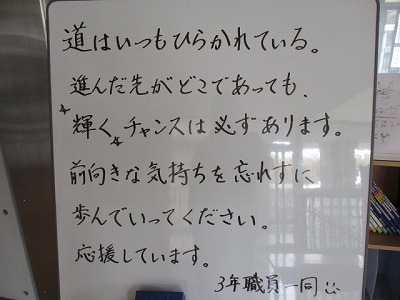 道はいつもひらかれている。
進んだ先がどこであっても、
輝くチャンスは必ずあります。
前向きな気持ちを忘れずに
歩んでいってください。
応援しています。
3年職員一同